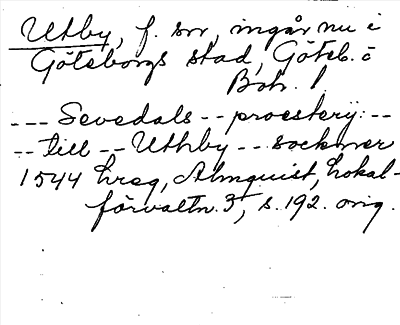 Utby, f. sn, ingår nu i
Göteborgs stad, Göteb. o
Boh. l.
--- Sevedals -- proesterij: --
-- till -- Uthby -- sockner
1544 hreg, Almquist, Lokal-
förvaltn. 3, s. 192. orig.